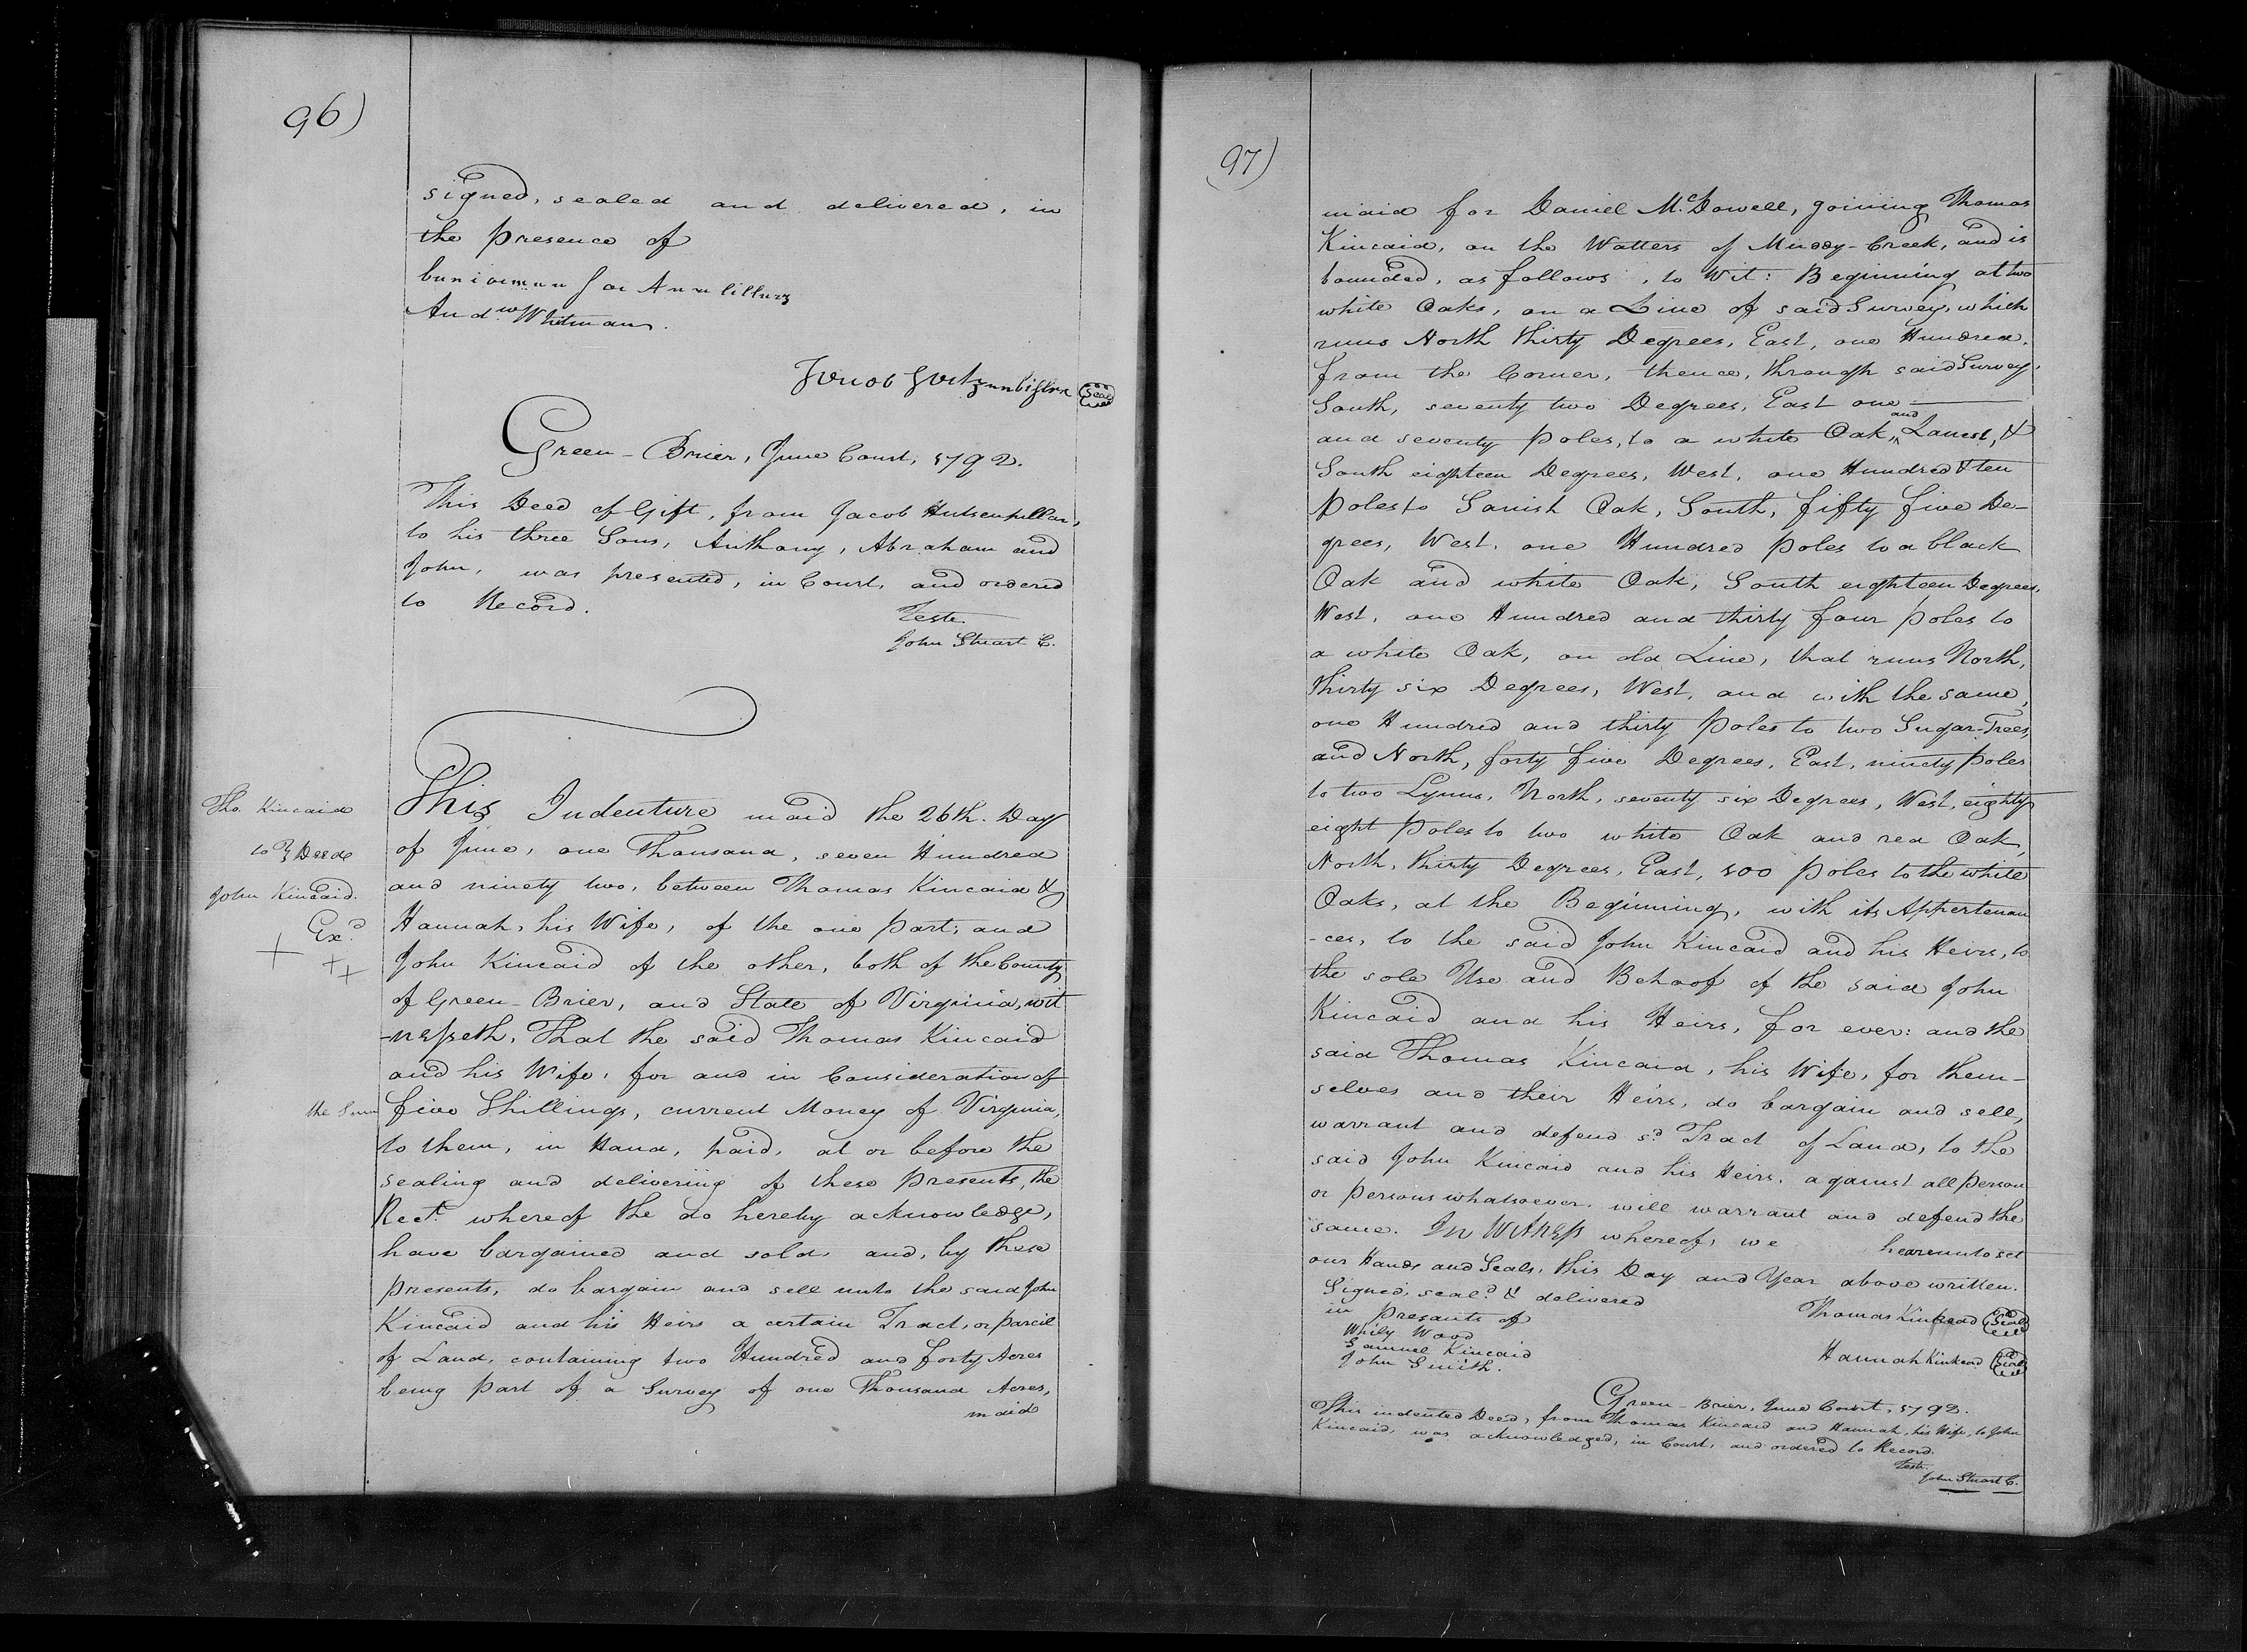 96)
signed, sealed and delivered, in
the presence of
And.w Whitman.
Jacob
Seal
Green-Brier, June Court, 1792.
This Deed of Gift, from Jacob Hutsenpillar,
to his three Sons, Anthony, Abraham and
John, was presented, in Court, and ordered
to Record.
Teste
John Stuart C.
Tho. Kincaid
to } Deede
John Kincaid.
Ex.d
This Indenture maid the 26th. Day
of June, one Thousand, seven Hundred
and ninety two, between Thomas Kincaid &
Hannah, his Wife, of the one Part; and
John Kincaid of the other, both of the County,
of Green-Brier, and State of Virginia, wit
-nesseth, That the said Thomas Kincaid
and his Wife, for and in Consideration of
the Sum five Shillings, current Money of Virginia,
to them, in Hand, paid, at or before the
sealing and delivering of these Presents, the
Rect. whereof the do hereby acknowledge,
have bargained and sold, and, by these
presents, do bargain and sell unto the said John
Kincaid and his Heirs a certain Tract, or parcil
of Land, containing two Hundred and forty Acres
being part of a Survey of one Thousand Acres,
maid
97)
maid for Daniel McDowell, joining Thomas
Kincaid, on the Watters of Muddy-Creek, and is
bounded, as follows, to Wit: Beginning at two
white Oaks, on a Line of said Survey, which
runs North thirty Degrees, East, one Hundred,
from the Corner, thence, through said Survey,
South, seventy two Degrees, East one
and seventy poles, to a white Oak, and &
South eighteen Degrees, West, one Hundred & ten
Poles to Sanish Oak, South, fifty five De-
grees, West, one Hundred Poles to a black
Oak and white Oak, South eighteen Degrees,
West, one Hundred and thirty four poles to
a white Oak, on old Line, that runs North,
thirty six Degrees, West, and with the same,
one Hundred and thirty Poles to two Sugar-Trees,
and North, forty five Degrees, East, ninety Poles
to two Lynns, North, seventy six Degrees, West, eighty
eight Poles to two white Oak and red Oak,
North, thirty Degrees, East, 100 poles to the white
Oaks, at the Beginning, with its Appertenan
-ces, to the said John Kincaid and his Heirs, to
the sole Use and Behoof of the said John
Kincaid and his Heirs, for ever: and the
said Thomas Kincaid, his Wife, for them-
selves and their Heirs, do bargain and sell,
warrant and defend sd. Tract of Land, to the
said John Kincaid and his Heirs, against all person
or persons whatsoever, will warrant and defend the
same. In Witness whereof, we heareunto set
our Hands and Seals, this Day and Year above written.
Signed, seal.d & delivered
in presants of
Whily Wood
Samuel Kincaid
John Smith.
Thomas Kinkead Seal
Hannah Kinkead Seal
Green-Brier, June Court, 1792.
This indented Deed, from Thomas Kincaid and Hannah, his Wife, to John
Kincaid, was acknowledged, in Court, and ordered to Record.
Teste.
John Stuart C.